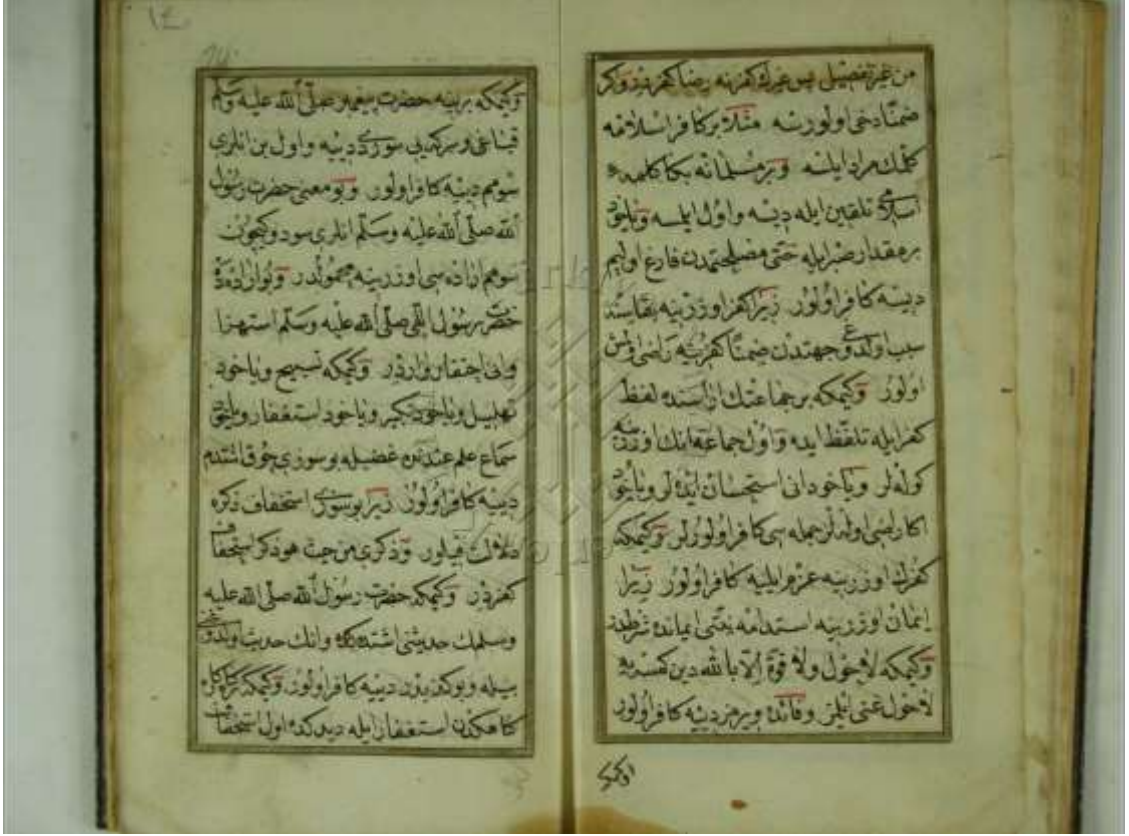 من غير تفصيل پس غيرك كفرينه رضا كفردر وكر
ضمنا دخی اولورسه مثلا بر كافر اسلامه
كلمك مراد ايلسه وبر مسلمانه بكا كلمهء
اسلامی تلقين ايله ديسه واول ايلسه وياخود
بر مقدار صبر ايله حتی مصلحتمدن فارغ اوليم
ديسه كافر اولور زيرا كفر اوزرينه بقاسنه
سبب اولدوغی جهتدن ضمنا كفرينه راضی اولمش
اولور وكيمكه بر جماعتك اراسنده لفظ
كفر ايله تلفظ ايده واول جماعة انك اوزرينه
كوله لر وياخود انی استحسان ايده لر وياخود
اكا راضی اولەلر جمله سی كافر اولورلر وكيمكه
كفرك اوزرينه عزم ايليه كافر اولور زيرا
ايمان اوزرينه استدامه نعتی ايمانده شرطدر
وكيمكه لا حول ولا قوة الا بالله دين كمسه يه
لا حول غنی ايلمز وفائده ويرمز ديسه كافر اولور
وكيمكه
١٤
وكيمكه برينه حضرت پيغمبر صلى الله عليه وسلم
قباغی وسركه يی سوردی ديسه واول بن انلری
سومم ديسه كافر اولور وبو معنی حضرت رسول
الله صلى الله عليه وسلم انلری سودوكيچون
سومم اراده سی اوزرينه محمولدر وبو اراده ده
حضرت رسول اللهی صلى الله عليه وسلم استهزا
وانی احتقار واردر وكيمكه تسبيح وياخود
تهليل وياخود تكبير وياخود استغفار وياخود
سماع علم عندنده غضبله بو سوزی چوق اشتدم
ديسه كافر اولور زيرا بو سوزی استخفاف ذكره
دلالت قيلور وذكری من حيث هو ذكر استخفاف
كفردر وكيمكه حضرت رسول الله صلى الله عليه
وسلمك حديثنی اشتدكده وانك حديث اولدوغنی
بيله وبو كذبدر ديسه كافر اولور وكيمكه
استغفار ايله ديدكده اول استخفاف